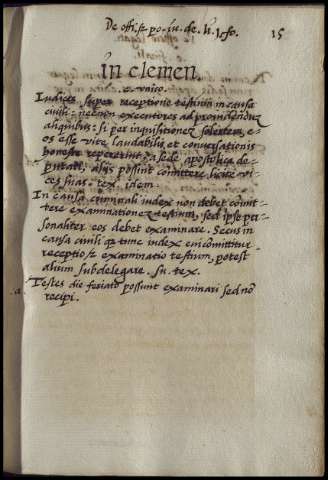 De offi. et po. iu. de. li. i. fo. 15
in clemen
c. unico.
Iudices super receptione testium in causa
civili: necnon executores ad providendum
aliquibus: si per inquisitionem solertem, e-
os esse vite laudabilis et conversationis
honeste repererint: a sede apostolica de-
putati, alijs possint comittere licite vi-
ces suas. tex. idem.
In causa criminali iudex non debet comit-
tere examinationem testium, sed ipse per-
sonaliter eos debet examinare. Secus in
causa civili qa tunc iudex cui comittitur
receptio et examinatio testium, potest
alium subdelegare. su. tex.
Testes die feriato possunt examinari sed no
recipi.